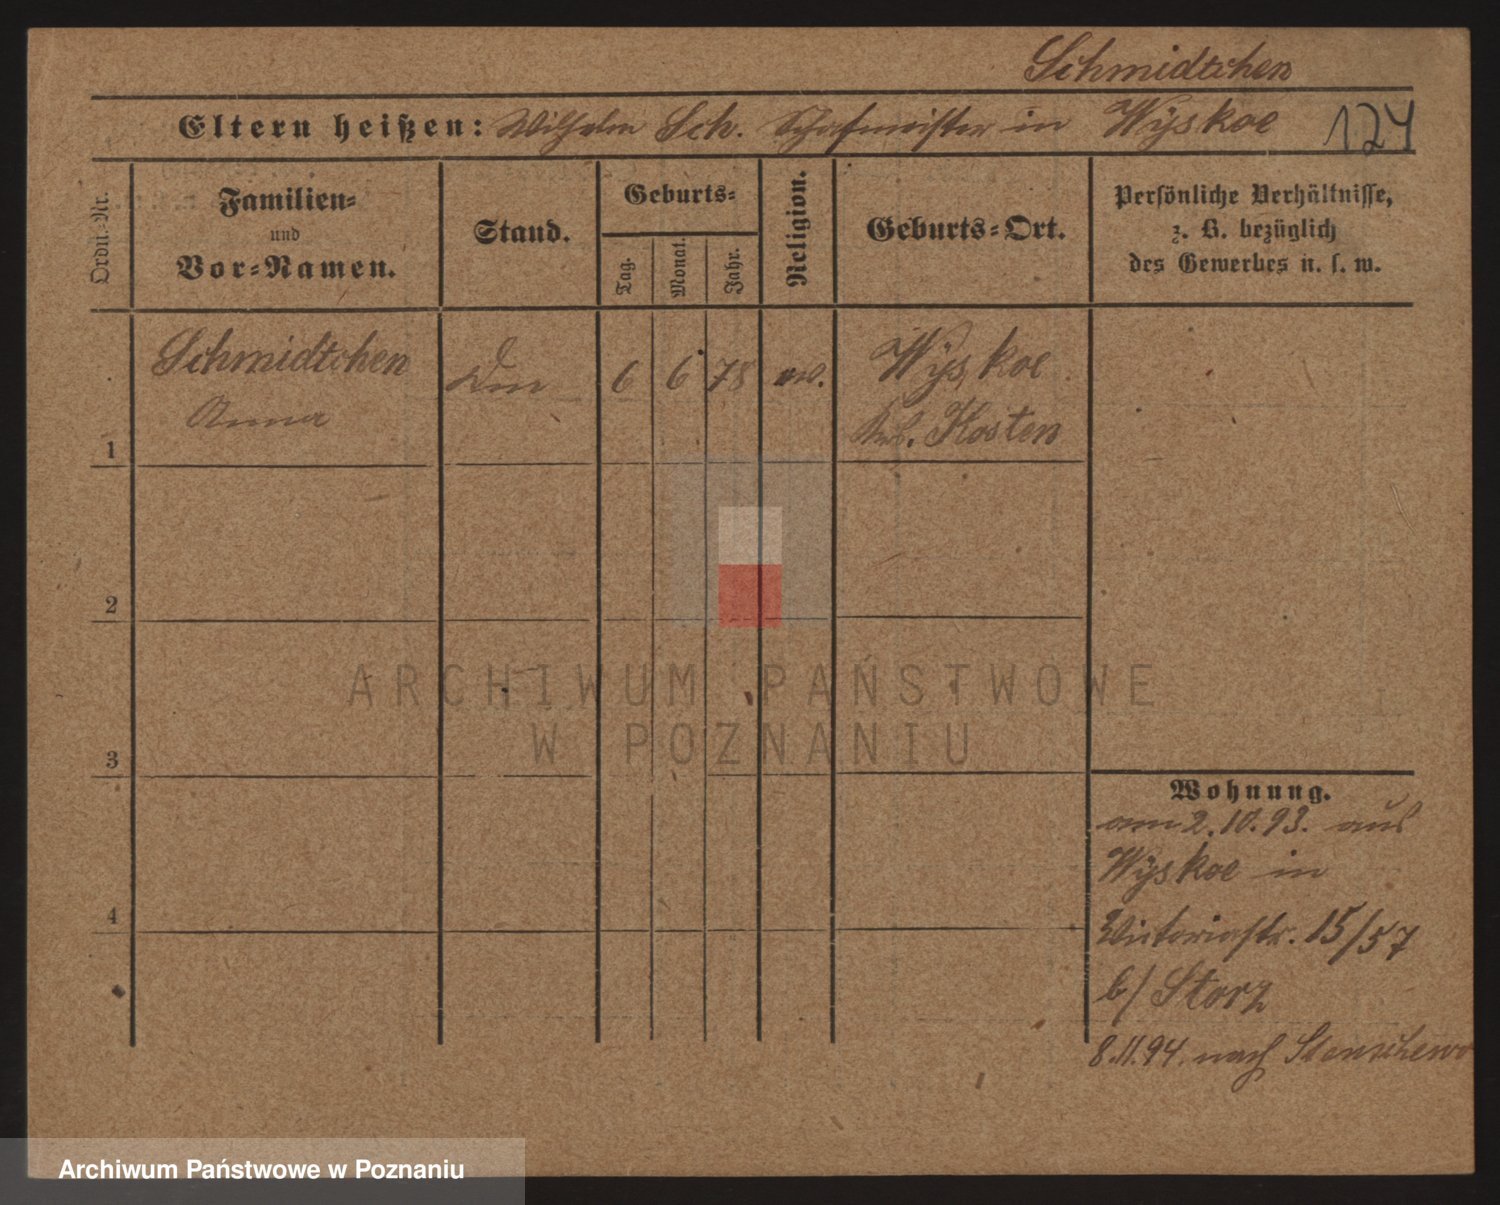 Schmidtchen
Eltern heißen: Wilhelm Sch. Schafmeister in Wyskoe 124
Ordn.-Nr.
Familien- und Vor-Namen.
Stand.
Geburts-
Tag. Monat. Jahr.
Religion.
Geburts-Ort.
Persönliche Verhältnisse,
z. B. bezüglich
des Gewerbes u. s. w.
1 Schmidtchen 6 6 78 ew. Wyskoe
Anna Krb. Kosten
2
3
4
Wohnung.
am 2.10.93. aus
Wyskoe in
Victoriastr. 15/57
b/ Storz
8.11.94. nach Stenschewo
ARCHIWUM PAŃSTWOWE
W POZNANIU
Archiwum Państwowe w Poznaniu